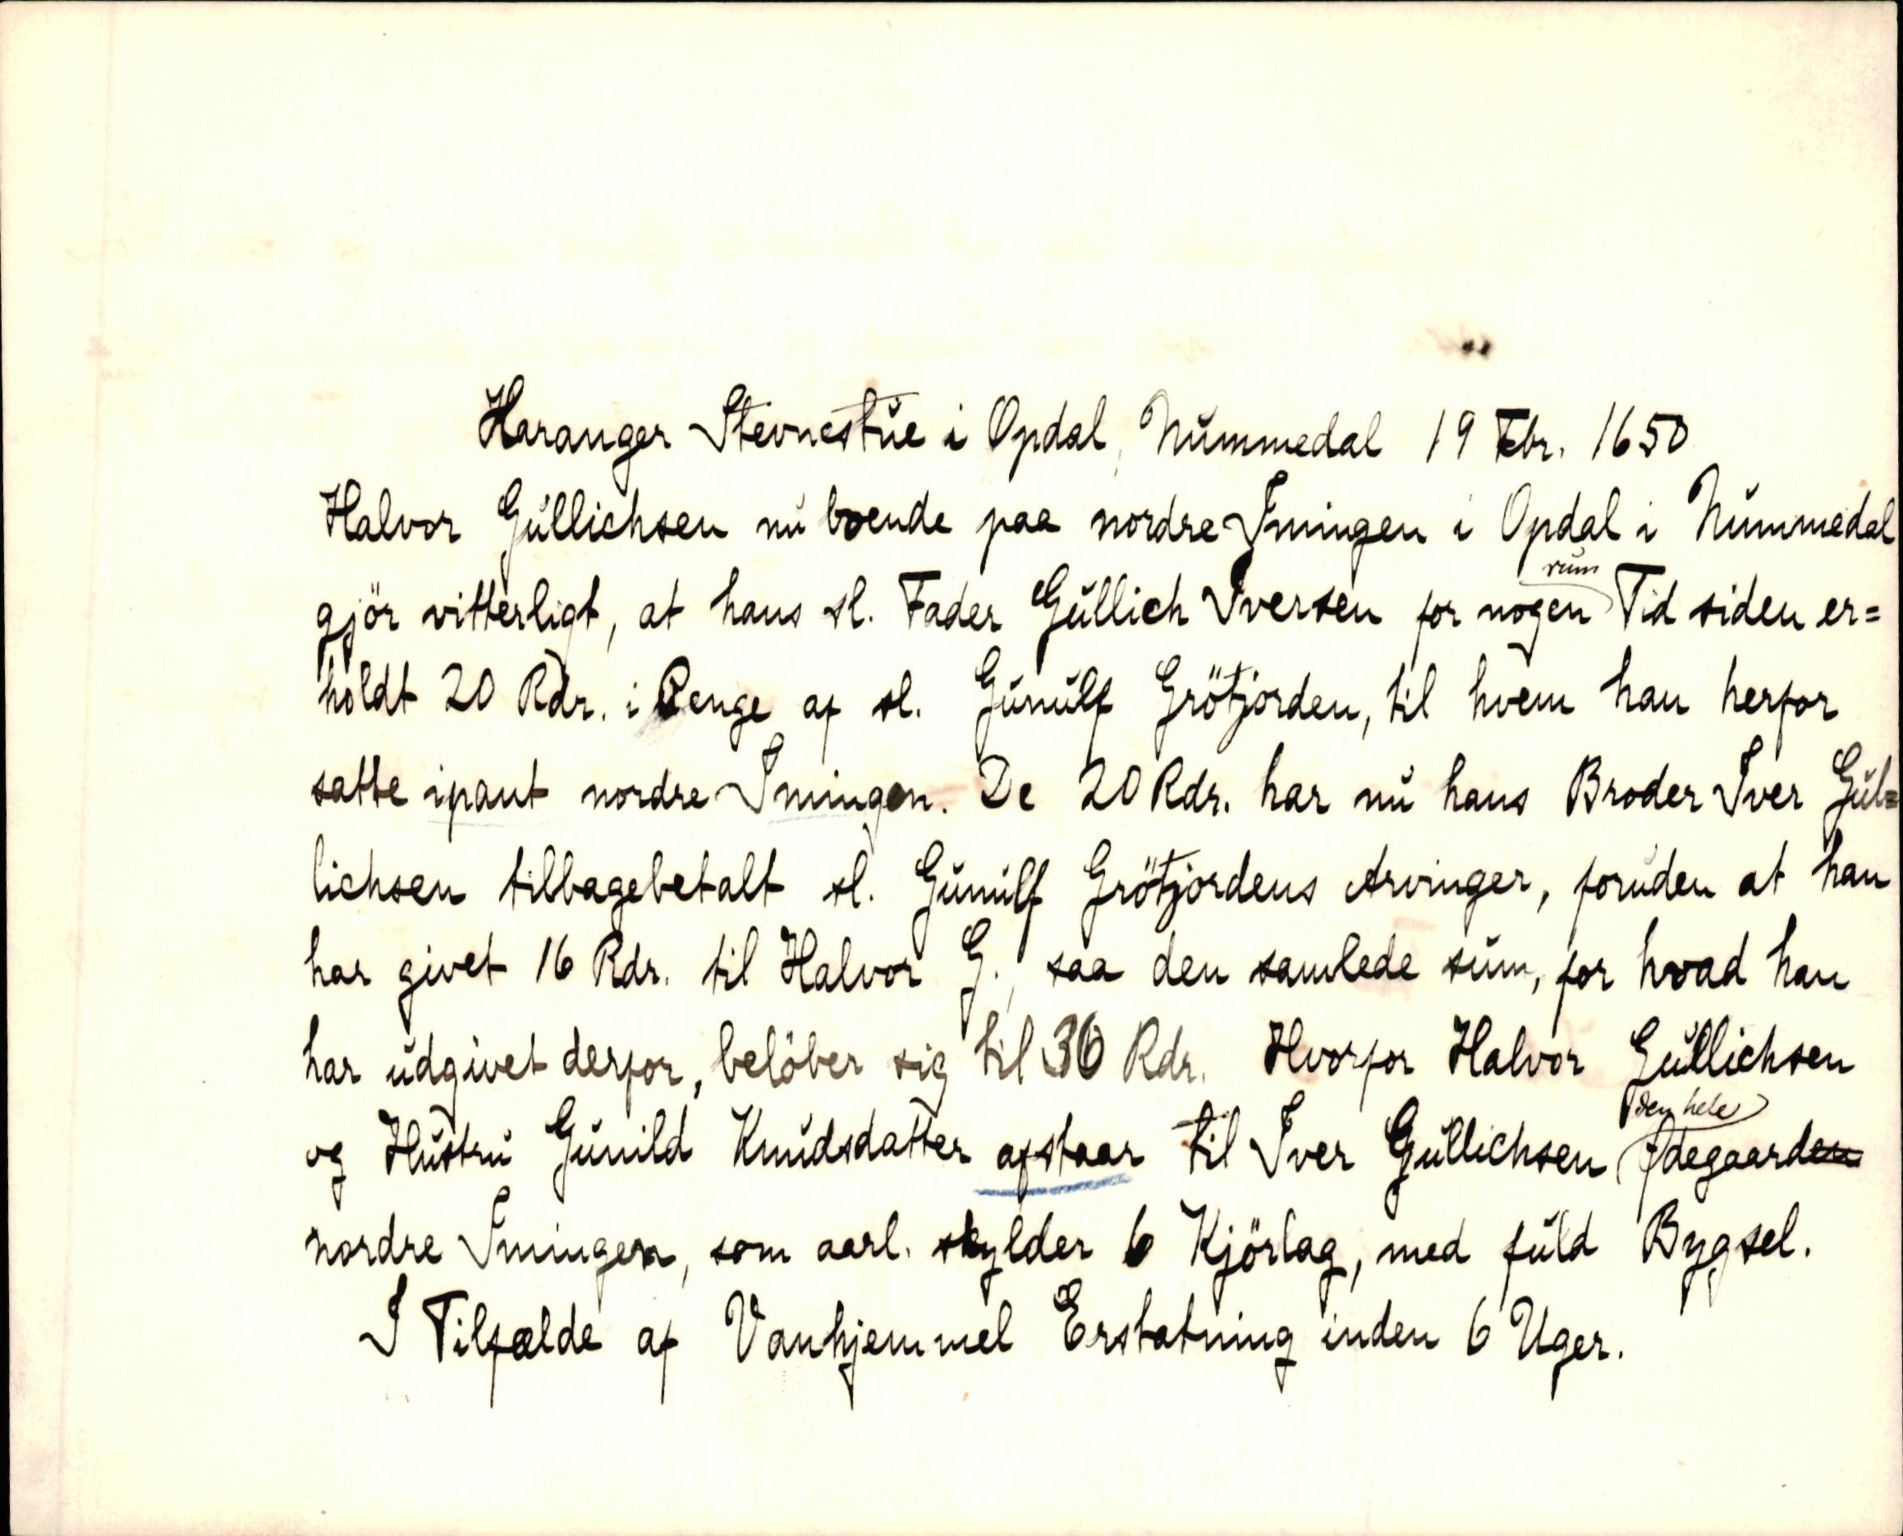 Haranger Stevnestue i Opdal, Nummedal 19 Febr. 1650
Halvor Gullichsen nu boende paa nordre Imingen i Opdal i Nummedal
gjör vitterligt, at hans sl. Fader Gullich Iversen for nogen rum Tid siden er=
holdt 20 Rdr. i Penge af sl. Gunulf Grötjorden, til hvem han herfor
satte ipant nordre Imingen. De 20 Rdr. har nu hans Broder Iver Gul=
lichsen tilbagebetalt sl. Gunulf Grötjordens Arvinger, foruden at han
har givet 16 Rdr. til Halvor G., saa den samlede sum, for hvad han
har udgivet derfor, belöber sig til 36 Rdr. Hvorfor Halvor Gullichsen
og Hustru Gunild Knudsdatter afstaar til Iver Gullichsen den hele Ødegaarden
nordre Imingen, som aarl. skylder 6 Kjörlag, med fuld Bygsel.
I Tilfælde af Vanhjemmel Erstatning inden 6 Uger.